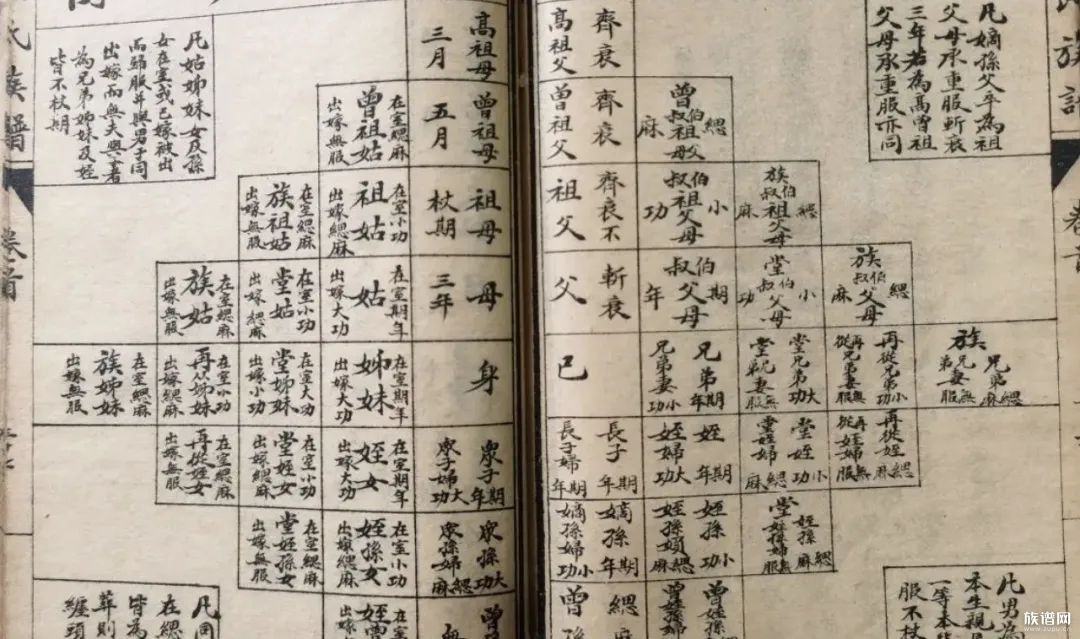 凡嫡孫父卒為祖
父母承重服斬衰
三年若為高曾祖
父母承重服亦同
齊衰
高祖父
高祖母
三月
凡姑姊妹女及孫
女在室或已嫁被出
而歸服并與男子同
出嫁而無夫與者
為兄弟姊妹及姪
皆不杖期
曾伯叔祖父母緦麻
齊衰
曾祖父
曾祖母
五月
在室緦麻
曾祖姑
出嫁無服
族伯叔祖父母緦麻
伯叔祖父母小功
齊衰不
祖父
祖母
杖期
在室小功
祖姑
出嫁緦麻
在室緦麻
族祖姑
出嫁無服
族伯叔父母緦麻
堂伯叔父母小功
伯叔父母期年
斬衰
父
母
三年
在室期年
姑
出嫁大功
在室小功
堂姑
出嫁緦麻
在室緦麻
族姑
出嫁無服
族兄弟緦麻
族兄弟妻無服
再從兄弟小功
再從兄弟妻無服
堂兄弟大功
堂兄弟妻無服
兄弟期年
兄弟妻小功
己
身
在室期年
姊妹
出嫁大功
在室大功
堂姊妹
出嫁小功
在室小功
再從姊妹
出嫁緦麻
在室緦麻
族姊妹
出嫁無服
再從姪緦麻
再從姪婦無服
堂姪小功
堂姪婦緦麻
姪期年
姪婦大功
長子期年
長子婦期年
衆子期年
衆子婦大功
在室期年
姪女
出嫁大功
在室小功
堂姪女
出嫁緦麻
在室緦麻
再從姪女
出嫁無服
堂姪孫緦麻
堂姪孫婦無服
姪孫小功
姪孫婦緦麻
嫡孫期年
嫡孫婦小功
衆孫大功
衆孫婦緦麻
在室小功
姪孫女
出嫁緦麻
在室緦麻
堂姪孫女
出嫁無服
凡男為
本生親
一等本
服不杖
曾姪孫
曾姪孫
緦
曾孫
曾
無
在室緦
姪曾
出嫁無
凡同
在緦
皆為
葬則
纏頭
氏族譜
卷首
氏族譜
卷首
族谱网
www.zupu.cn